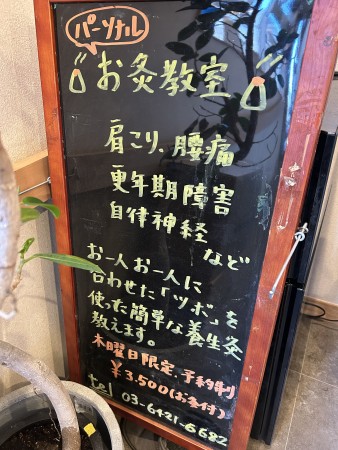 パーソナル
お灸教室
肩こり、腰痛
更年期障害
自律神経
など
お一人お一人に
合わせた「ツボ」を
使った簡単な養生灸
教えます。
木曜日限定、予約制
¥3,500(お灸付)
tel 03-6421-6682